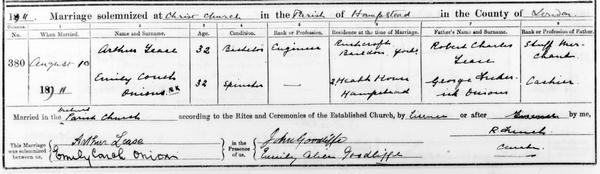 1911 Marriage solemnized at Christ Church in the Parish of Hampstead in the County of London
No. When Married. Name and Surname. Age. Condition. Rank or Profession. Residence at the time of Marriage. Father's Name and Surname. Rank or Profession of Father.
380 August 10 1911
Arthur Lease 32 Bachelor Engineer Baildon, Yorks. Robert Charles Lease Stuff Merchant
Emily Couch Onions 32 Spinster — 2 Heath House Hampstead George Frederick Onions Cashier
Married in the Parish Church according to the Rites and Ceremonies of the Established Church, by Licence or after by me,
This Marriage was solemnized between us, Arthur Lease
Emily Couch Onions
in the Presence of us, John Goodliffe
Emily Alice Goodliffe
Curate